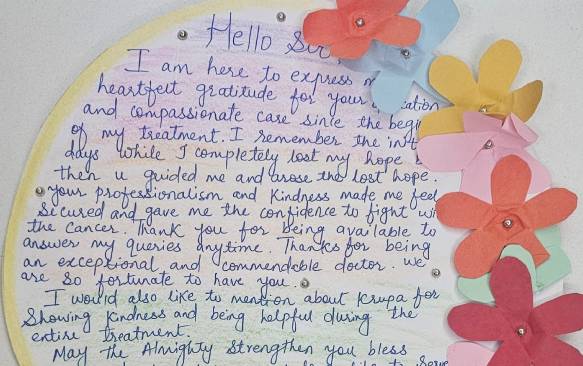 Hello Sir,
I am here to express
heartfelt gratitude for your
and compassionate care since the
of my treatment. I remember the
days while I completely lost my hope
then u guided me and arose the lost hope.
your professionalism and Kindness made me feel
Secured and gave me the confidence to fight
the Cancer. Thank you for being available to
answer my queries anytime. Thanks for being
an exceptional and commendable doctor. We
are so fortunate to have you.
I would also like to mention about Krupa for
Showing Kindness and being helpful during the
entire treatment.
May the Almighty strengthen you bless